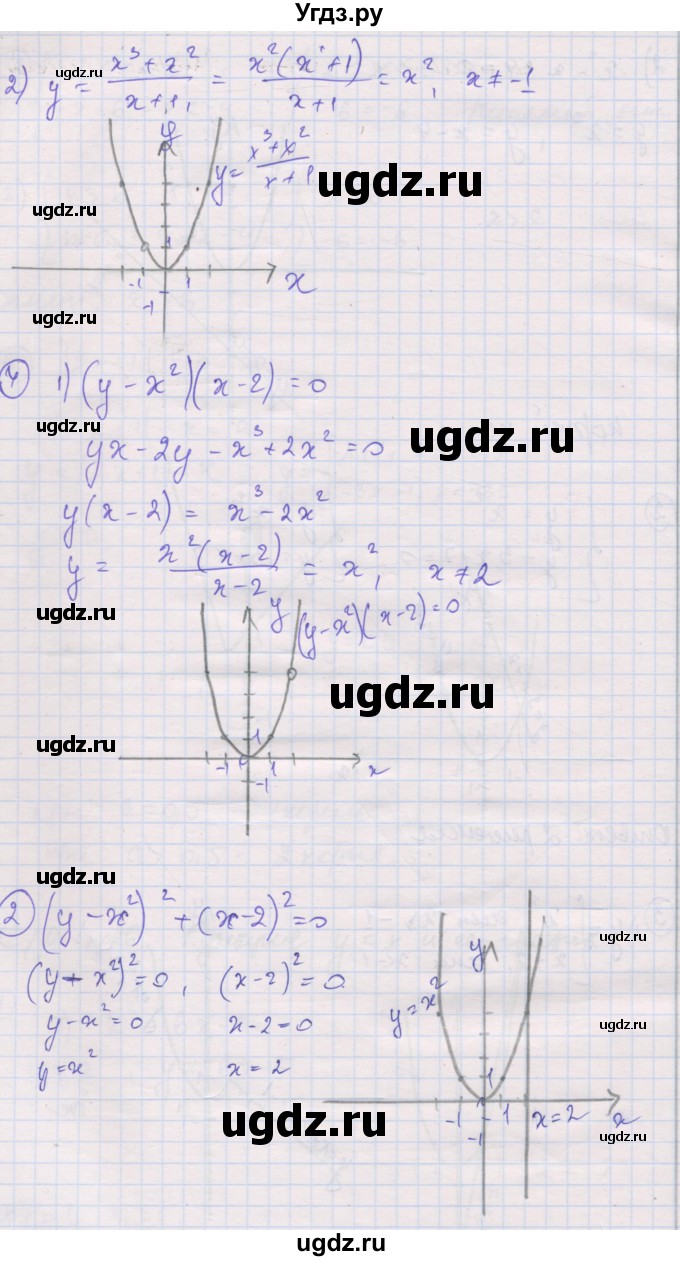 Угдз.ру
2) y = (x³ + x²)/(x + 1) = x²(x + 1)/(x + 1) = x², x ≠ -1
ugdz.ru
y
y = (x³ + x²)/(x + 1)
ugdz.ru
ugdz.ru
1
-1 1
-1
x
ugdz.ru
4 1) (y - x²)(x - 2) = 0
ugdz.ru
ugdz.ru
yx - 2y - x³ + 2x² = 0
y(x - 2) = x³ - 2x²
ugdz.ru
y = x²(x - 2)/(x - 2) = x², x ≠ 2
ugdz.ru
y
(y - x²)(x - 2) = 0
ugdz.ru
ugdz.ru
1
-1 1
x
-1
ugdz.ru
2 (y - x²)² + (x - 2)² = 0
ugdz.ru
y
(y - x²)² = 0, (x - 2)² = 0
y = x²
y - x² = 0 x - 2 = 0
ugdz.ru
y = x² x = 2
ugdz.ru
1
-1 1 x = 2 x
-1
ugdz.ru
ugdz.ru
ugdz.ru